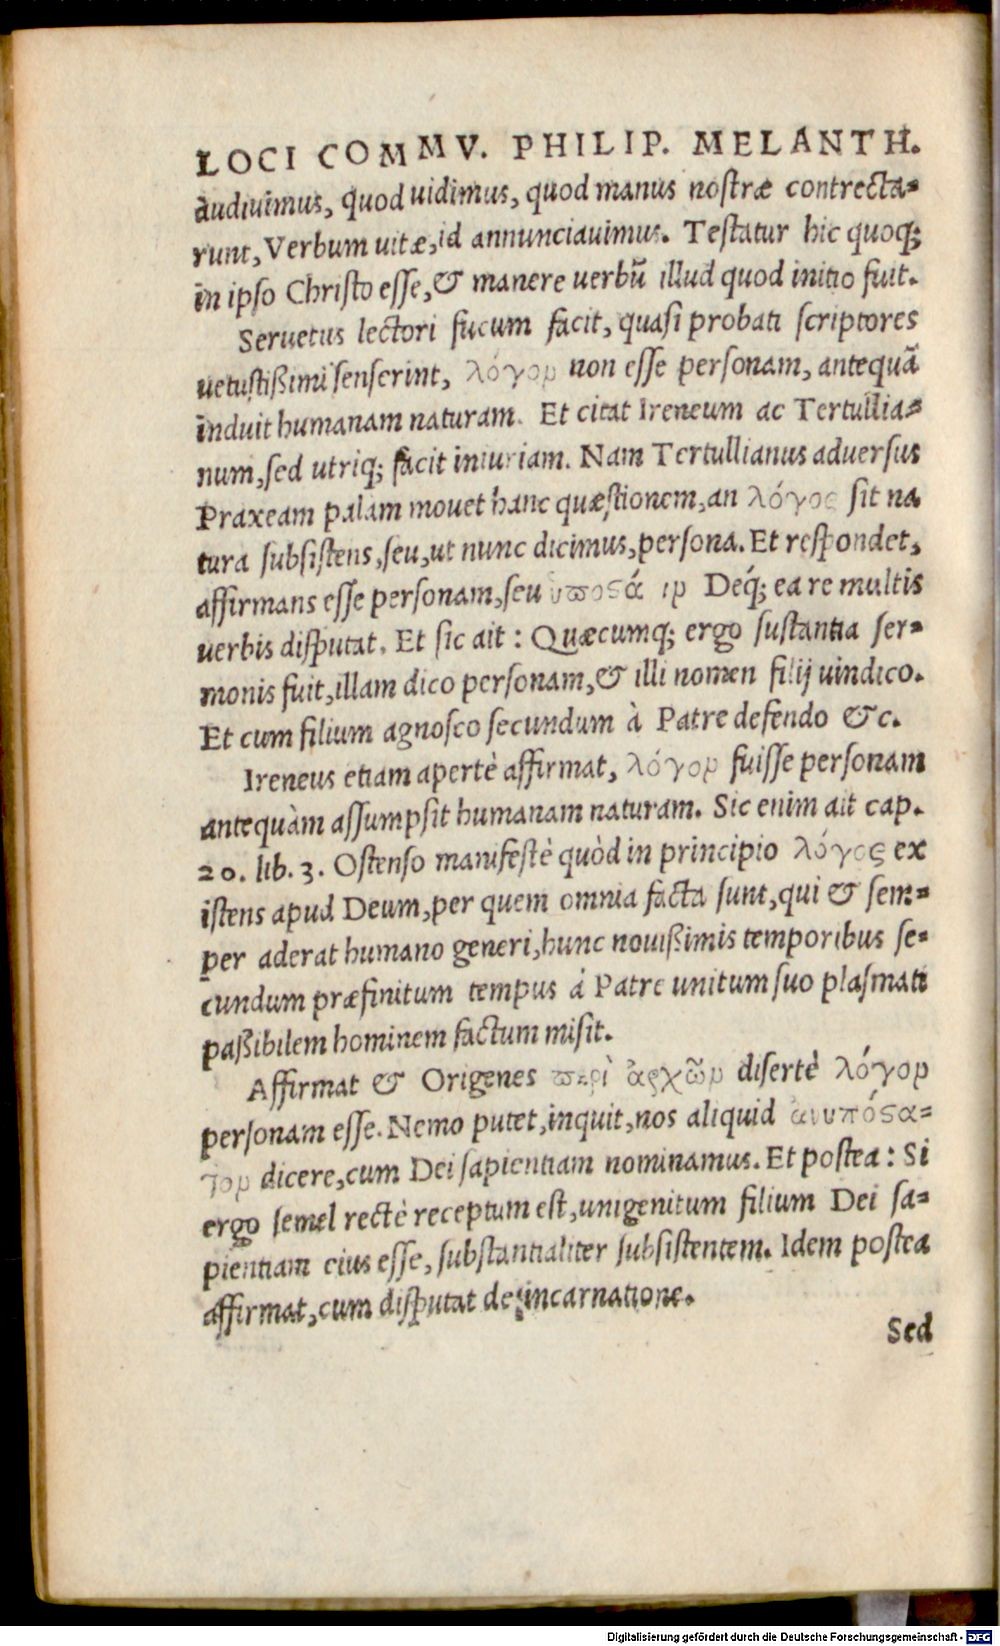 LOCI COMMV. PHILIP. MELANTH.
audiuimus, quod uidimus, quod manus nostræ contrecta=
runt, Verbum uitæ, id annunciauimus. Testatur hic quoq;
in ipso Christo esse, & manere uerbũ illud quod initio fuit.
Seruetus lectori fucum facit, quasi probati scriptores
uetustißimi senserint, λόγον non esse personam, antequã
induit humanam naturam. Et citat Ireneum ac Tertullia=
num, sed utriq; facit iniuriam. Nam Tertullianus aduersus
Praxeam palam mouet hanc quæstionem, an λόγος sit na
tura subsistens, seu, ut nunc dicimus, persona. Et respondet,
affirmans esse personam, seu Deq́; ea re multis
uerbis disputat. Et sic ait: Quæcumq; ergo sustantia ser=
monis fuit, illam dico personam, & illi nomen filij uindico.
Et cum filium agnosco secundum à Patre defendo &c.
Ireneus etiam apertè affirmat, λόγον fuisse personam
antequàm assumpsit humanam naturam. Sic enim ait cap.
20. lib. 3. Ostenso manifestè quòd in principio λόγος ex
istens apud Deum, per quem omnia facta sunt, qui & sem=
per aderat humano generi, hunc nouißimis temporibus se=
cundum præfinitum tempus á Patre unitum suo plasmati
paßibilem hominem factum misit.
Affirmat & Origenes ϖερὶ ἀρχῶν disertè λόγον
personam esse. Nemo putet, inquit, nos aliquid ἀνυπόϛα=
τον dicere, cum Dei sapientiam nominamus. Et postea: Si
ergo semel rectè receptum est, unigenitum filium Dei sa=
pientiam eius esse, substantialiter subsistentem. Idem postea
affirmat, cum disputat de incarnatione.
Sed
Digitalisierung gefördert durch die Deutsche Forschungsgemeinschaft - DFG